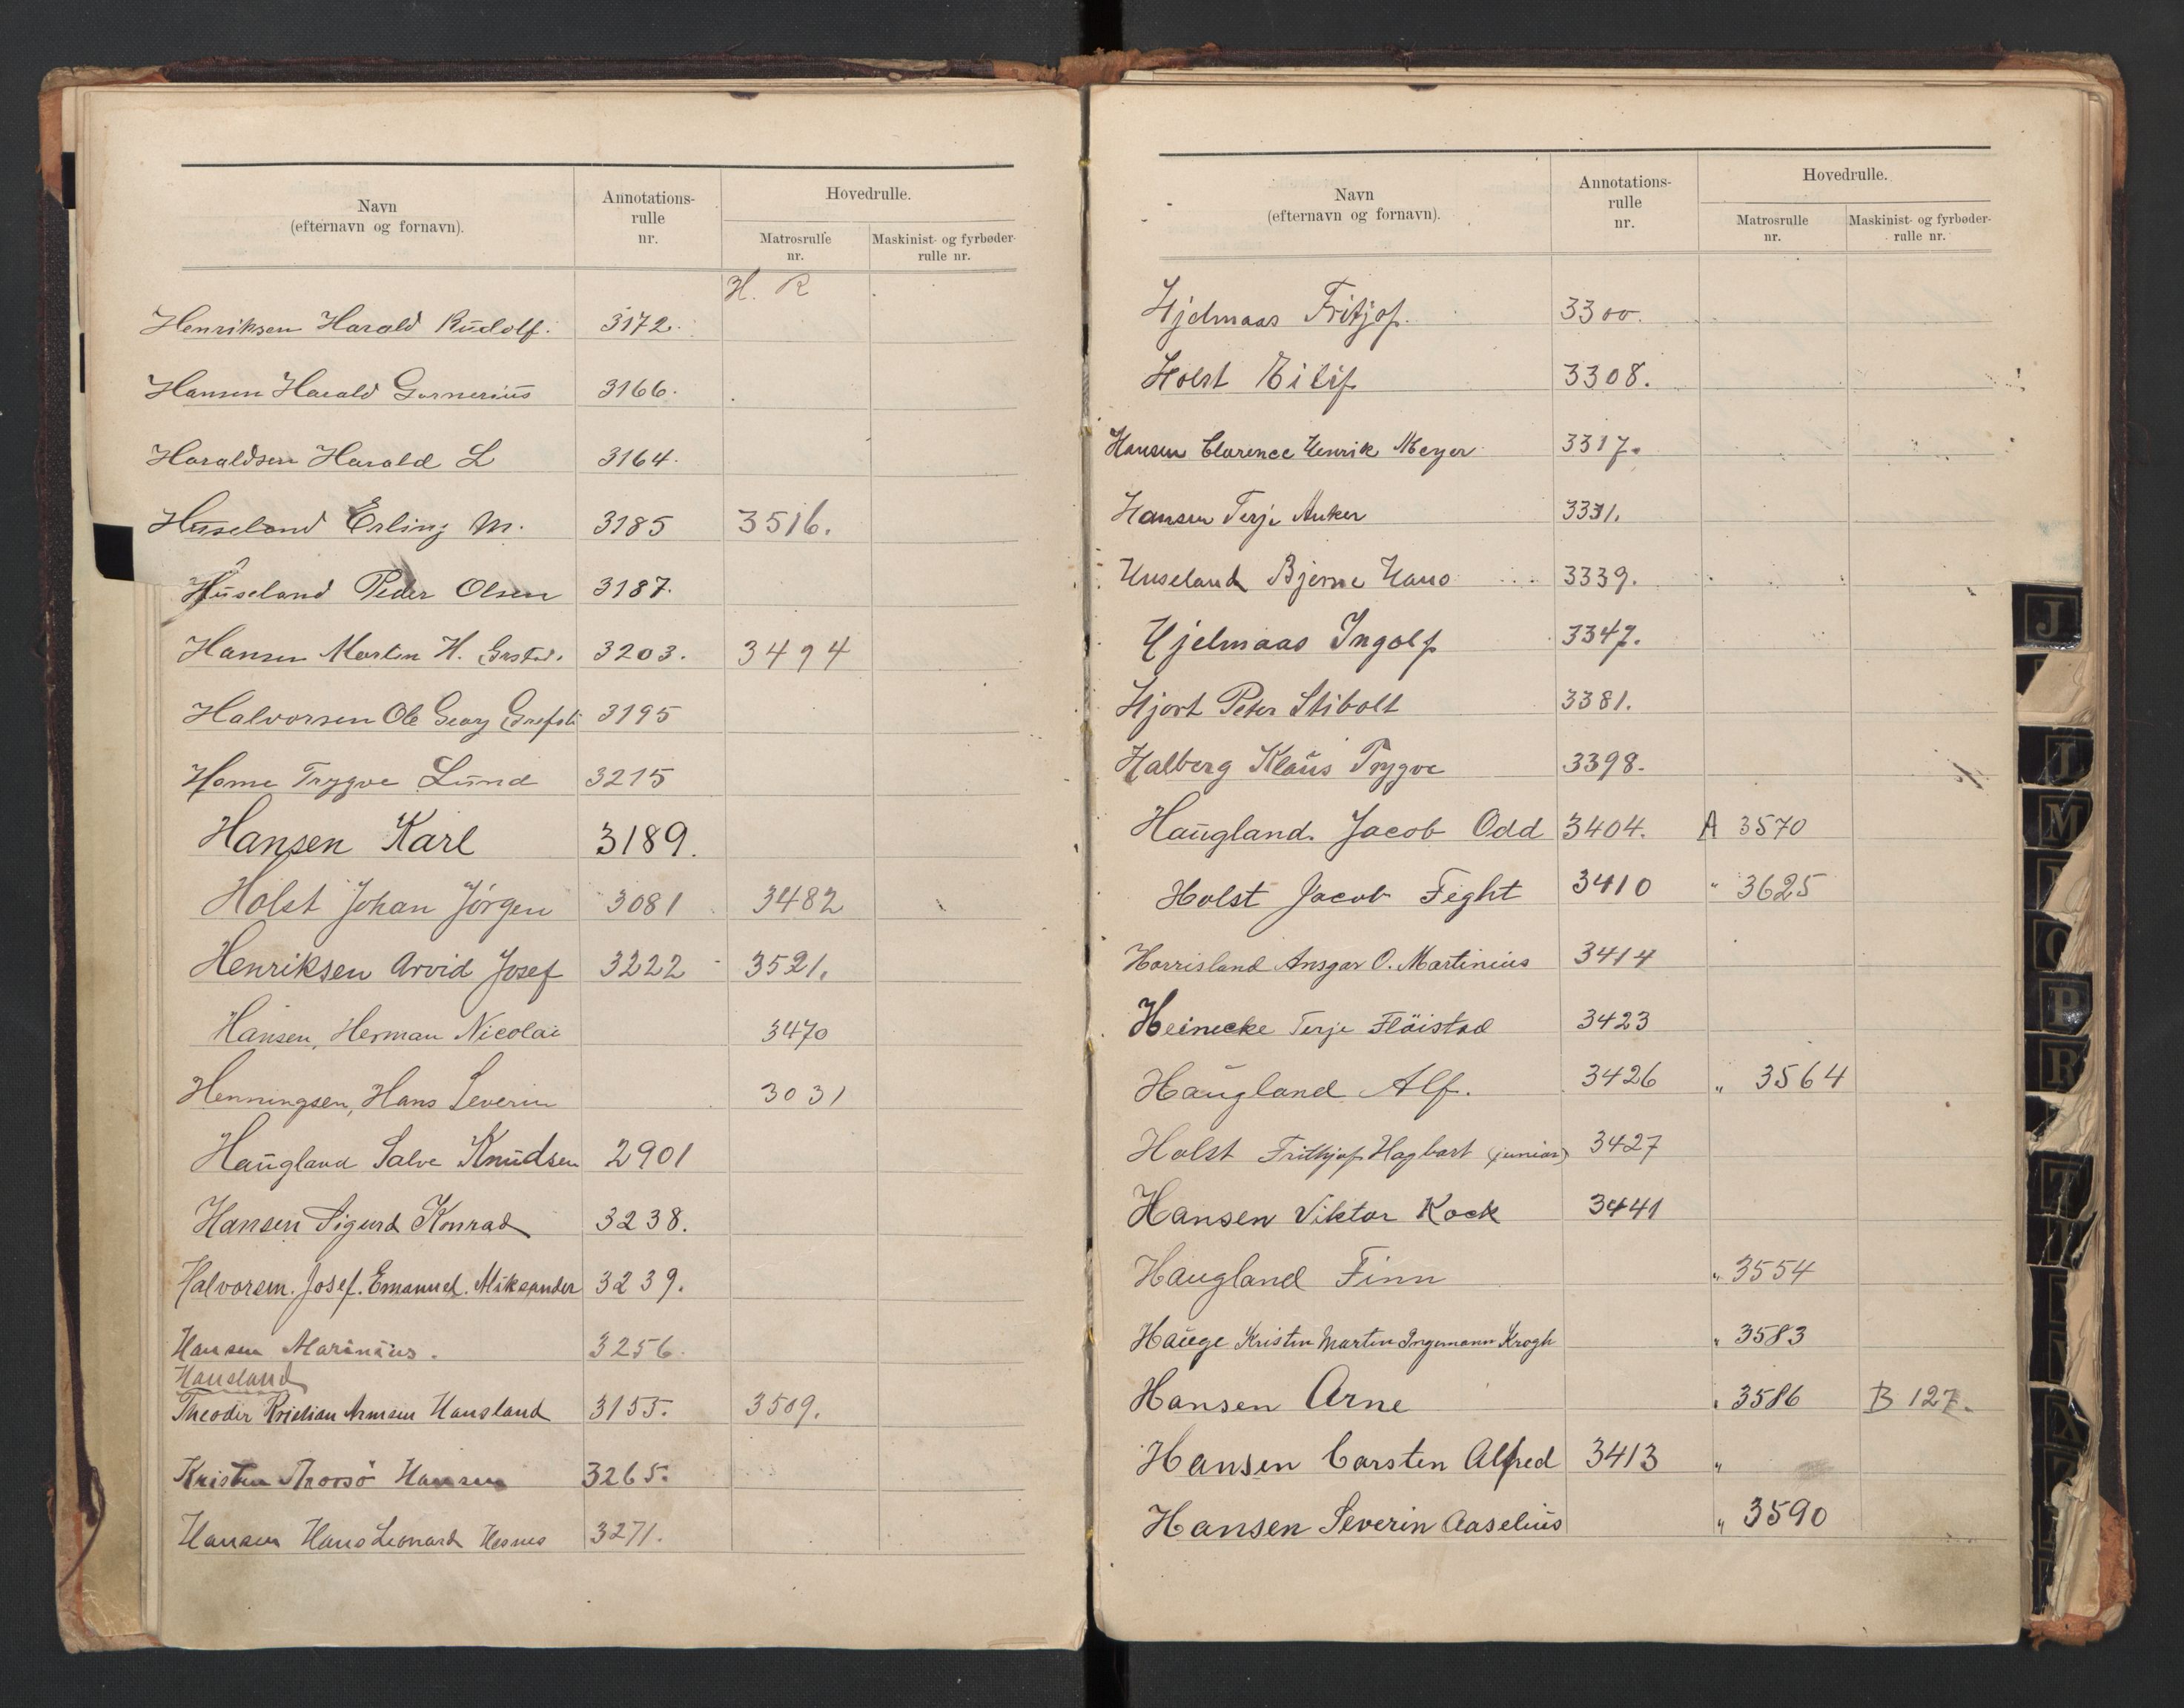 Navn
(efternavn og fornavn).
Annotations-
rulle
nr.
Hovedrulle.
Matrosrulle
nr.
Maskinist- og fyrbøder-
rulle nr.
H. R
Henriksen Harald Rudolf. 3172.
Hansen Harald 3166.
Haraldsen Harald L 3164.
Huseland Erling M. 3185 3516.
Huseland Peder Olsen 3187.
Hansen Martin H. 3203. 3494
Halvorsen Ole Georg 3195
Home Trygve Lund 3215
Hansen Karl 3189.
Holst Johan Jörgen 3081 3482
Henriksen Arvid Josef 3222 3521.
Hansen, Herman Nicolai 3470
Henningsen, Hans Severin 3031
Haugland Salve Knudsen 2901
Hansen Sigurd Konrad 3238.
Halvorsen. Josef. Emanuel. 3239.
Hansen Marinius. 3256.
Hausland
Theodor Kristian Hausland 3155. 3509.
Kristen Hansen 3265.
Hansen Hans Leonard Hesnes 3271.
Navn
(efternavn og fornavn).
Annotations-
rulle
nr.
Hovedrulle.
Matrosrulle
nr.
Maskinist- og fyrbøder-
rulle nr.
Hjelmaas Fritjof. 3300.
Holst Eilif 3308.
Hansen Clarence Henrik Meyer 3317.
Hansen Terje Anker 3331.
Huseland Bjerne Hans 3339.
Hjelmaas Ingolf 3347.
Hjort Peter Stibolt 3381.
Halberg Klaus Trygve 3398.
Haugland. Jacob Odd 3404. A 3570
Holst Jacob Feght 3410 " 3625
Horrisland Ansgar O. Martinius 3414
Heinecke Terje Flöistad 3423
Haugland Alf. 3426 " 3564
Holst Frithjof Hagbart (junior) 3427
Hansen Viktor Kock 3441
Haugland Finn " 3554
Hauge Kristen Martin Ingemann Krogh " 3583
Hansen Arne " 3586 B 127.
Hansen Carsten Alfred 3413 "
Hansen Severin Aaselius " 3590
J
I
M
O
P
R
T
X